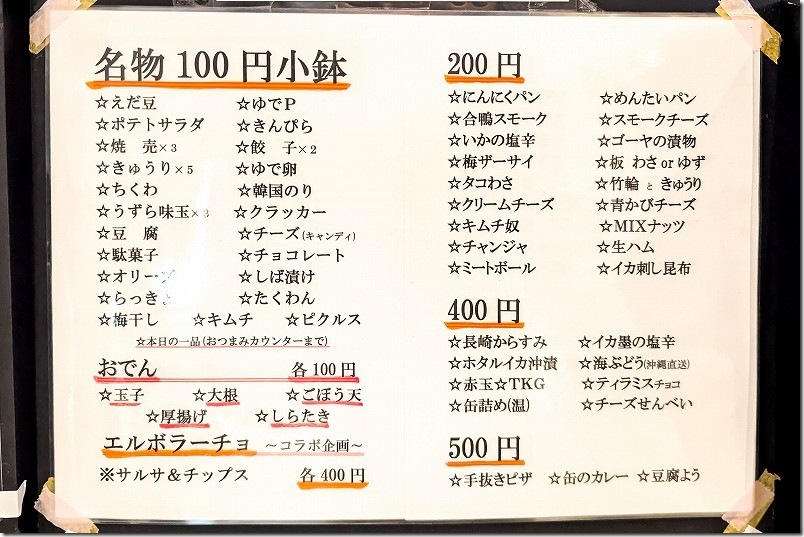 名物 100 円小鉢
☆えだ豆 ☆ゆでP
☆ポテトサラダ ☆きんぴら
☆焼 売×3 ☆餃 子×2
☆きゅうり×5 ☆ゆで卵
☆ちくわ ☆韓国のり
☆うずら味玉×3 ☆クラッカー
☆豆 腐 ☆チーズ(キャンディ)
☆駄菓子 ☆チョコレート
☆オリーブ ☆しば漬け
☆らっきょ ☆たくわん
☆梅干し ☆キムチ ☆ピクルス
☆本日の一品(おつまみカウンターまで)
おでん 各100円
☆玉子 ☆大根 ☆ごぼう天
☆厚揚げ ☆しらたき
エルボラーチョ ~コラボ企画~
※サルサ&チップス 各400円
200 円
☆にんにくパン ☆めんたいパン
☆合鴨スモーク ☆スモークチーズ
☆いかの塩辛 ☆ゴーヤの漬物
☆梅ザーサイ ☆板 わさ or ゆず
☆タコわさ ☆竹輪 と きゅうり
☆クリームチーズ ☆青かびチーズ
☆キムチ奴 ☆MIXナッツ
☆チャンジャ ☆生ハム
☆ミートボール ☆イカ刺し昆布
400 円
☆長崎からすみ ☆イカ墨の塩辛
☆ホタルイカ沖漬 ☆海ぶどう(沖縄直送)
☆赤玉☆TKG ☆ティラミスチョコ
☆缶詰め(温) ☆チーズせんべい
500 円
☆手抜きピザ ☆缶のカレー ☆豆腐よう